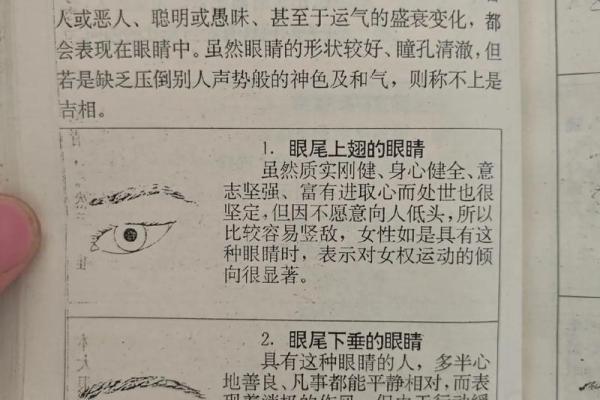 人或恶人、聪明或愚昧、甚至于运气的盛衰变化，都
会表现在眼睛中。虽然眼睛的形状较好、瞳孔清澈，但
若是缺乏压倒别人声势般的神色及和气，则称不上是
吉相。
1. 眼尾上翅的眼睛
虽然质实刚健、身心健全、意
志坚强、富有进取心而处世也很
坚定，但因不愿意向人低头，所以
比较容易竖敌，女性如是具有这
种眼睛时，表示对女权运动的倾
向很显著。
2. 眼尾下垂的眼睛
具有这种眼睛的人，多半心
地善良、凡事都能平静相对，而表